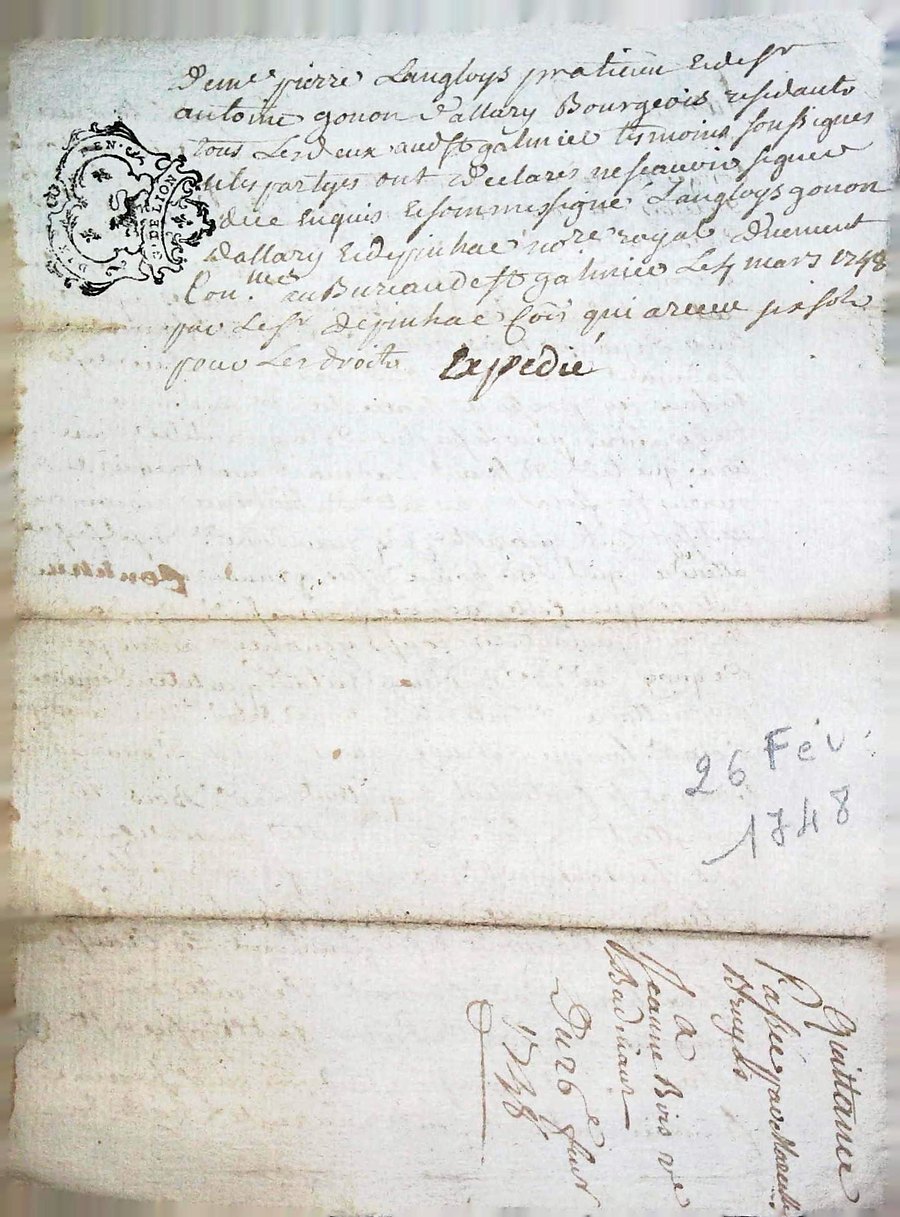 De me pierre Langloys praticien Et de sr
antoine gonon d'allary Bourgeois residants
tous Les deux audt St galmier tesmoins soussignes
Les partyes ont declares ne scavoir signer
de ce Enquis Et sommes signé Langloys gonon
d'allary Et depinhac nore royal duement
Con.llé au Bureau de St galmier Le 4 mars 1748
par Le sr depinhac Cois qui a receu six sols
pour Les droits Expedié
GEN. DE LION
26 Fév.
1748
Quittance
passée par
a
Jeanne Bois ve
Badinaud
Du 26e fevr
1748